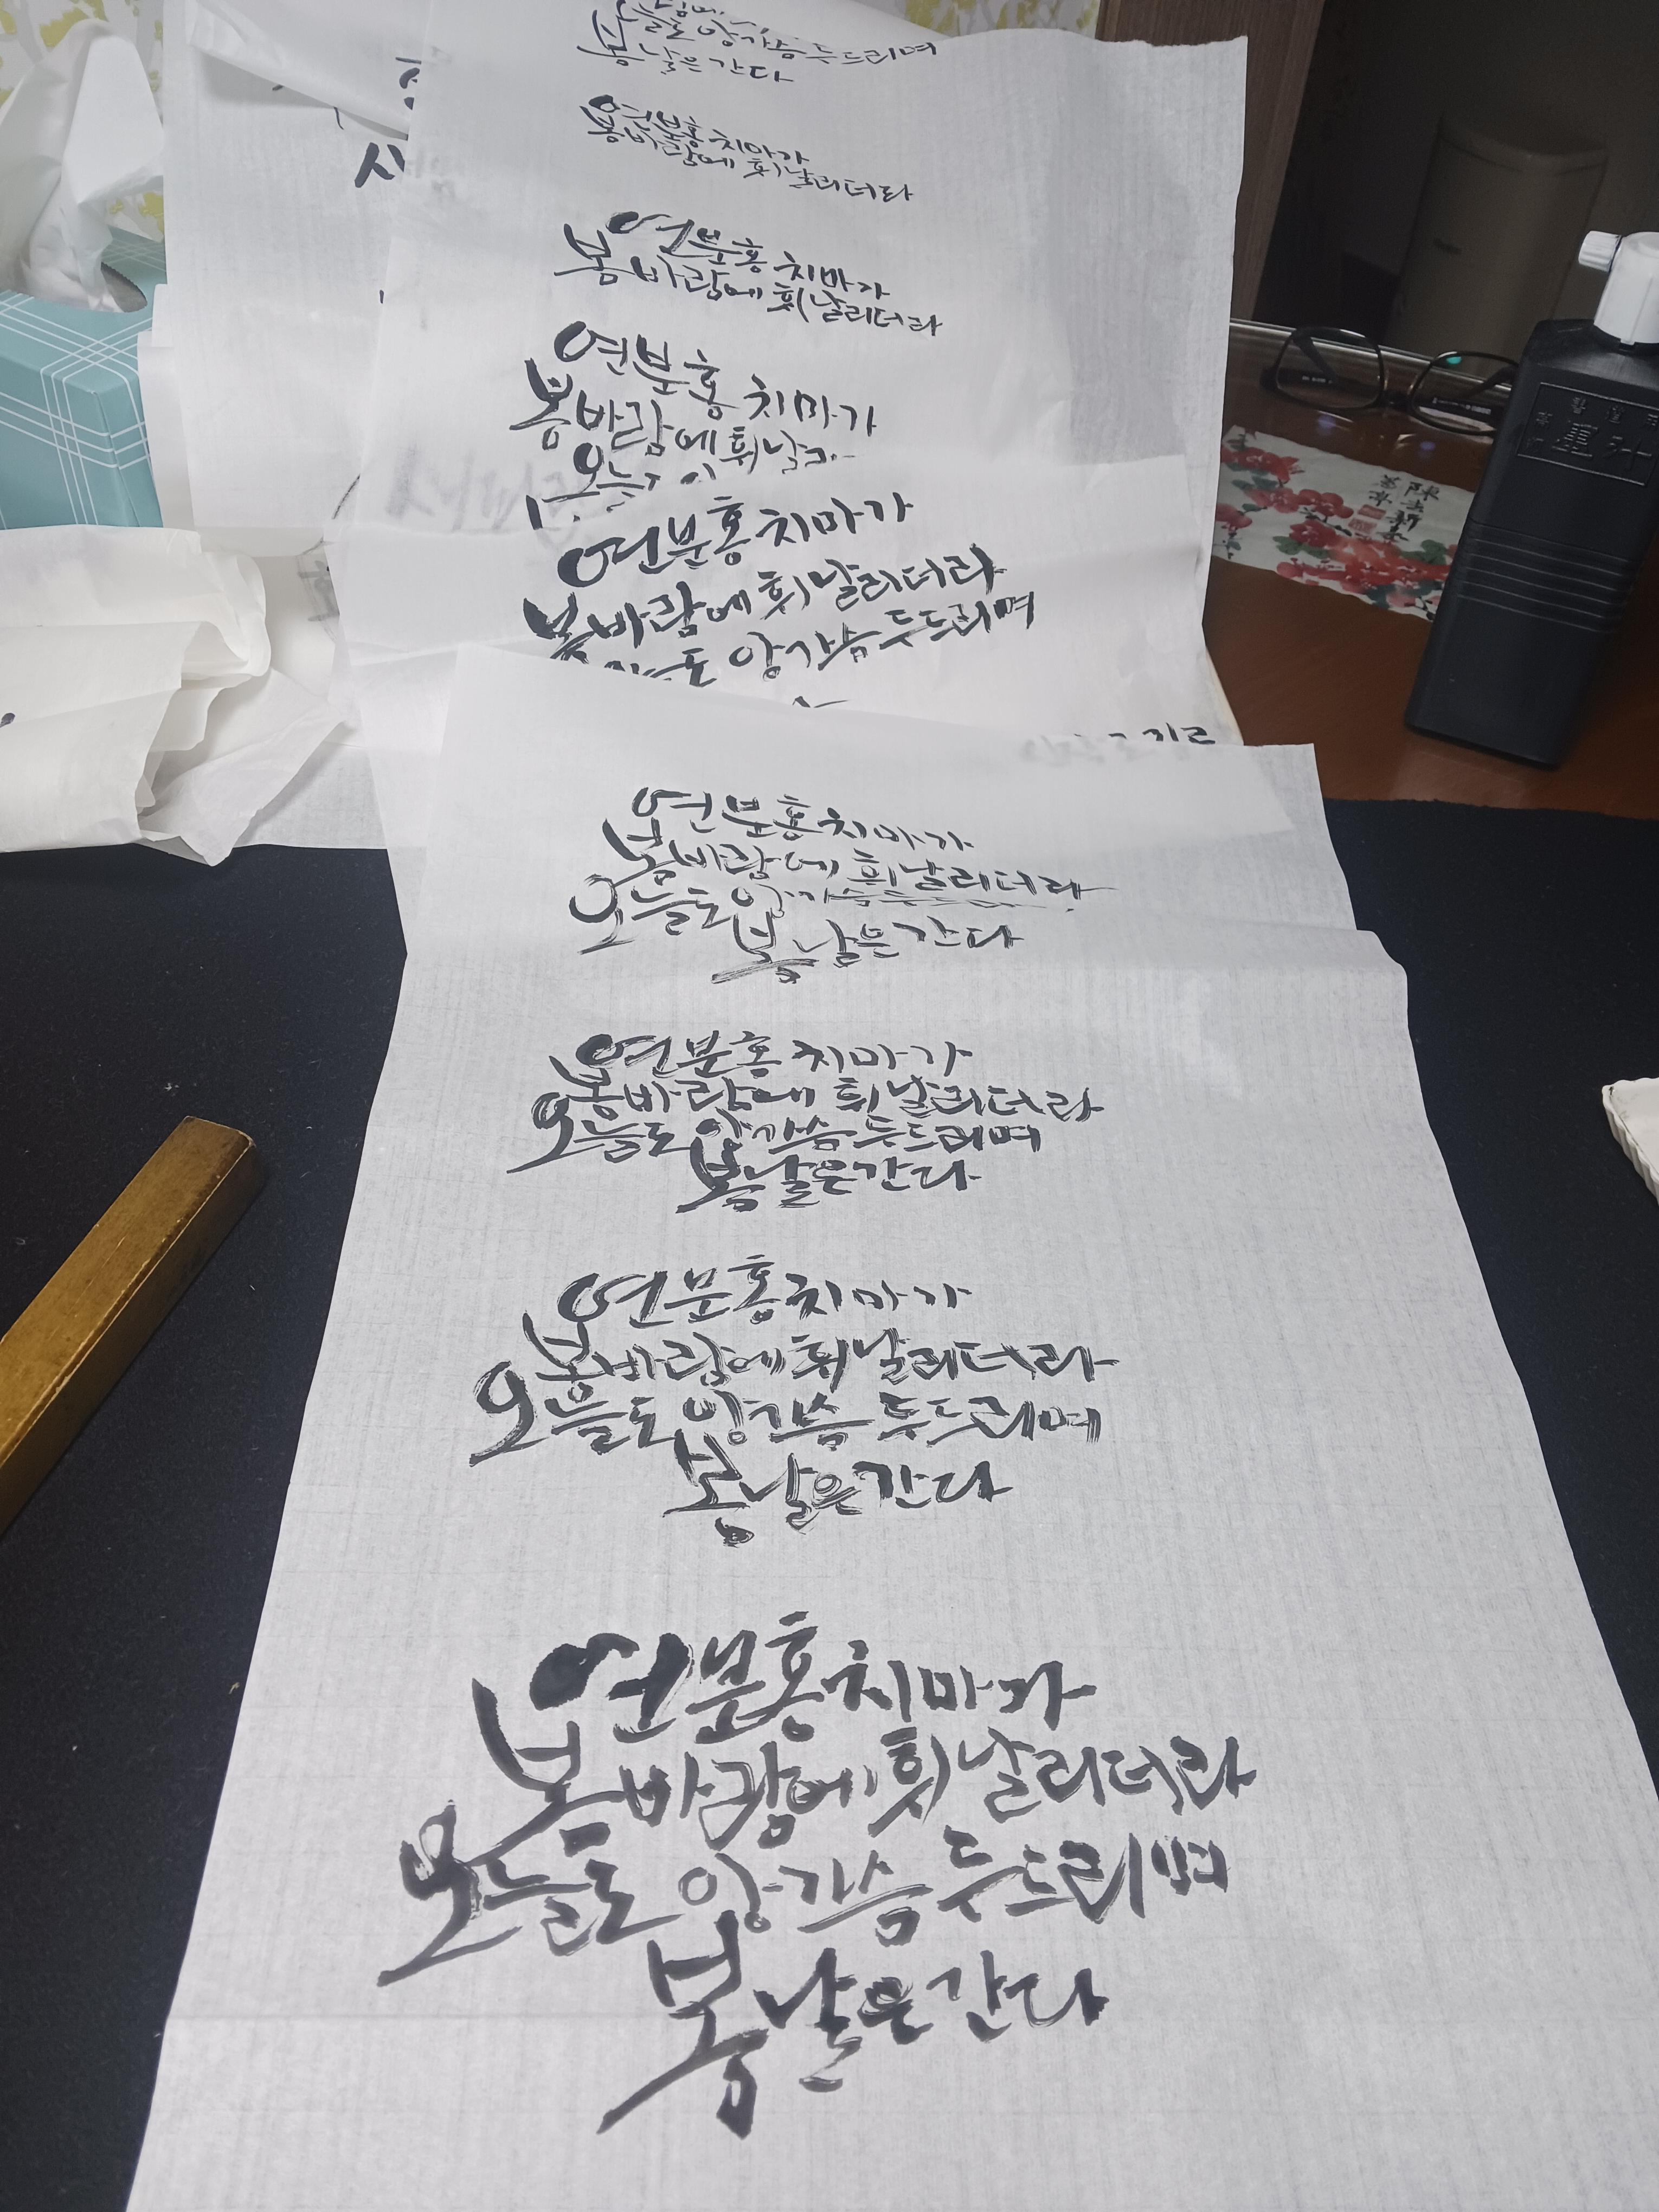 오늘도 앙가슴 두드리며
봄날은 간다
연분홍 치마가
봄바람에 휘날리더라
연분홍 치마가
봄바람에 휘날리더라
연분홍 치마가
봄바람에 휘날리
연분홍 치마가
봄바람에 휘날리더라
앙가슴 두드리며
연분홍 치마가
봄바람에 휘날리더라
오늘도 앙가슴 두드리며
봄날은 간다
연분홍 치마가
봄바람에 휘날리더라
오늘도 앙가슴 두드리며
봄날은 간다
연분홍 치마가
봄바람에 휘날리더라
오늘도 앙가슴 두드리며
봄날은 간다
연분홍 치마가
봄바람에 휘날리더라
오늘도 앙가슴 두드리며
봄날은 간다
墨汁